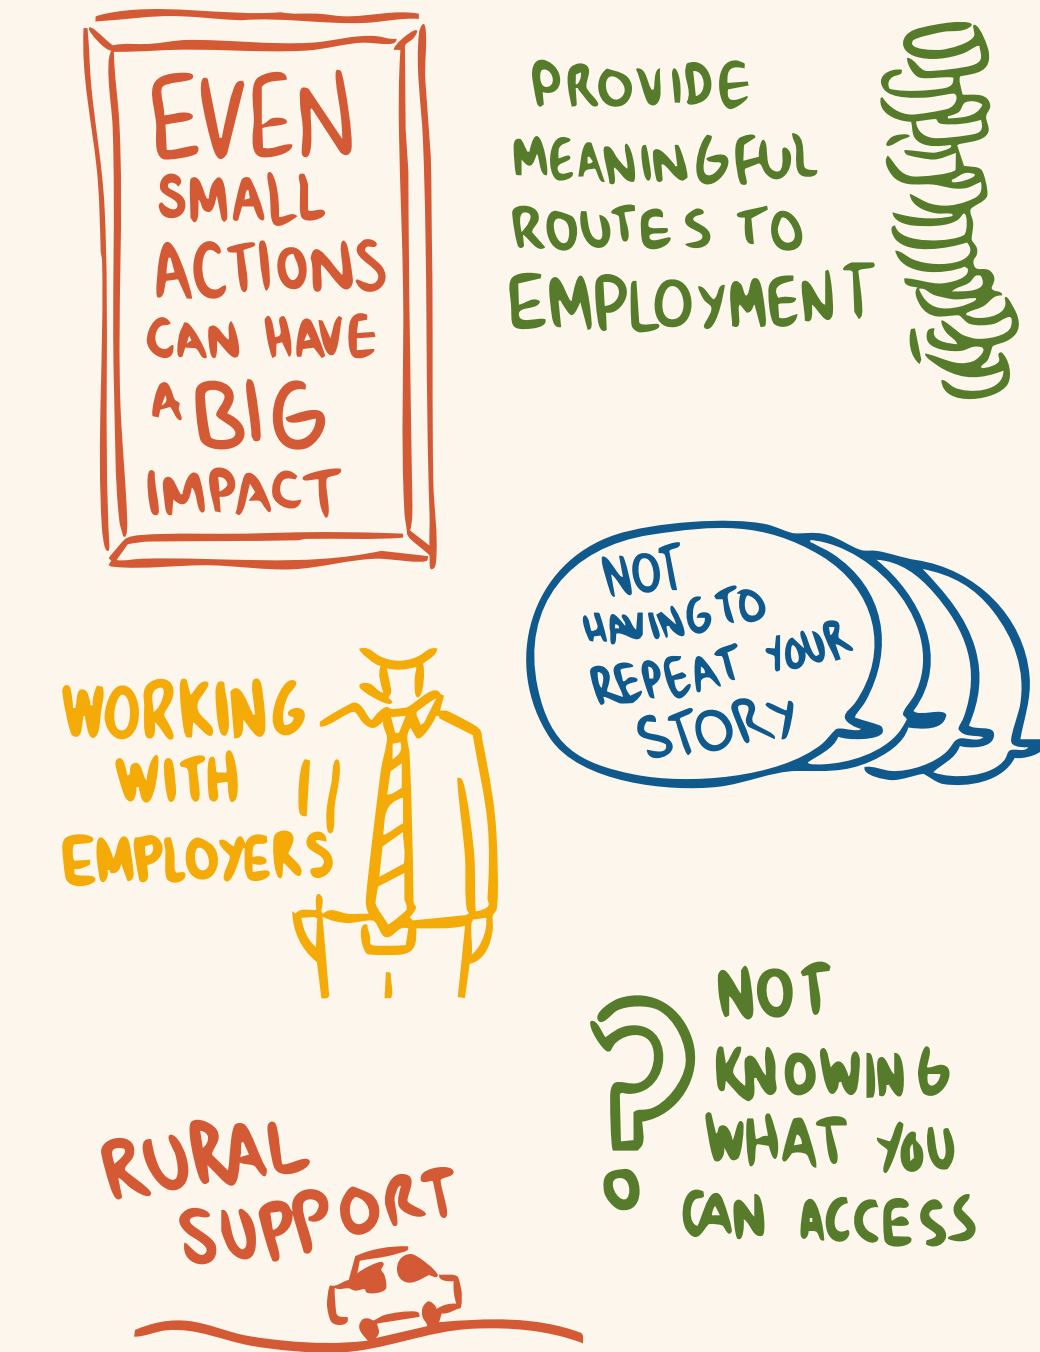 EVEN
SMALL
ACTIONS
CAN HAVE
A BIG
IMPACT
PROVIDE
MEANINGFUL
ROUTES TO
EMPLOYMENT
NOT
HAVING TO
REPEAT YOUR
STORY
WORKING
WITH
EMPLOYERS
NOT
KNOWING
WHAT YOU
CAN ACCESS
RURAL
SUPPORT